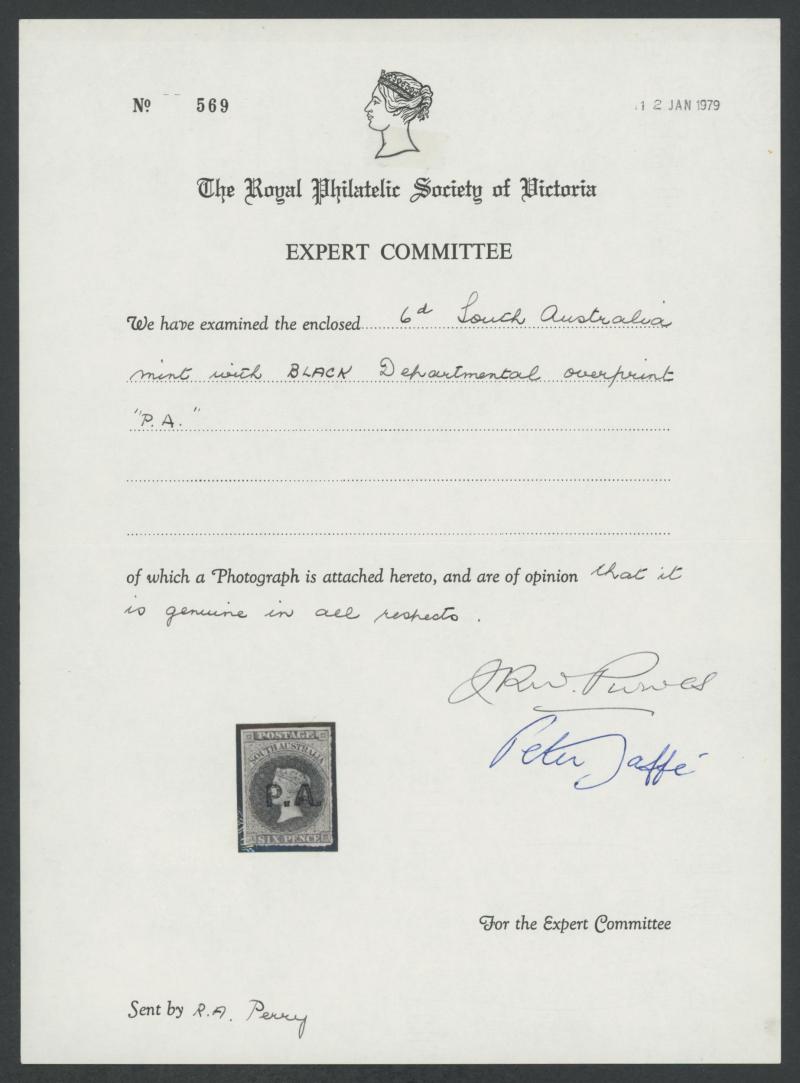 Nº 569
12 JAN 1979
The Royal Philatelic Society of Victoria
EXPERT COMMITTEE
We have examined the enclosed 6d South Australia
mint with BLACK Departmental overprint
"P.A."
of which a Photograph is attached hereto, and are of opinion that it
is genuine in all respects.
JRW. Purves
Peter Jaffé
POSTAGE
SOUTH AUSTRALIA
P.A.
SIX PENCE
For the Expert Committee
Sent by R.A. Perry